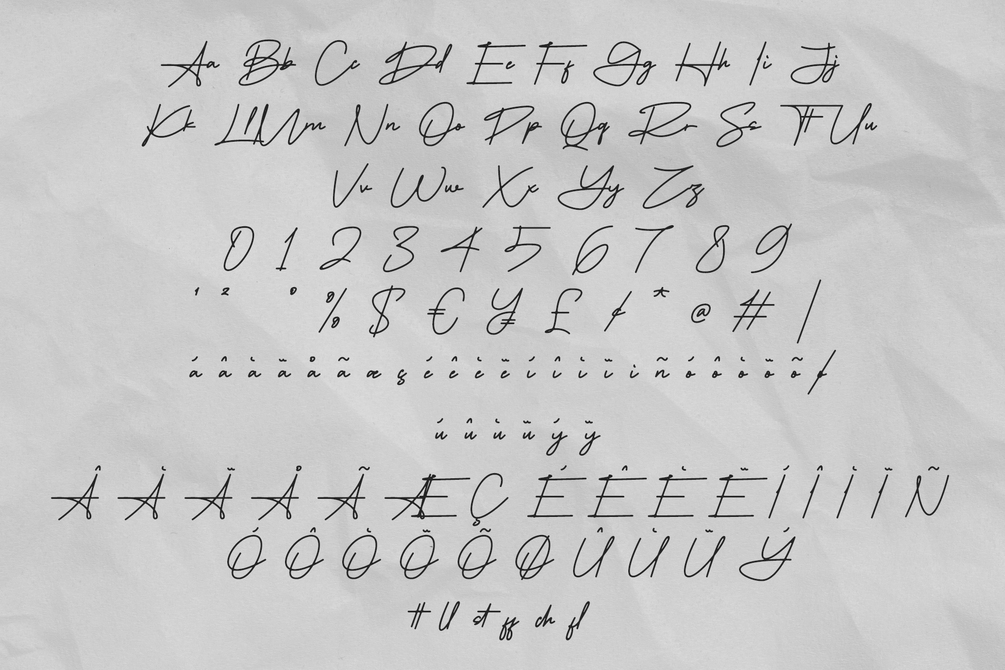 Aa Bb Cc Dd Ee Ff Gg Hh Ii Jj
Kk Ll Mm Nn Oo Pp Qq Rr Ss Tt Uu
Vv Ww Xx Yy Zz
0 1 2 3 4 5 6 7 8 9
¹ ² ° % $ € ¥ £ ¢ * @ # |
á â à ä å ã æ ç é ê è ë í î ì ï i ñ ó ô ò ö õ ø
ú û ù ü ý ÿ
Â À Ä Å Ã Æ Ç É Ê È Ë Í Î Ì Ï Ñ
Ó Ô Ò Ö Õ Ø Û Ù Ü Ý
tt ll st ff ch fl